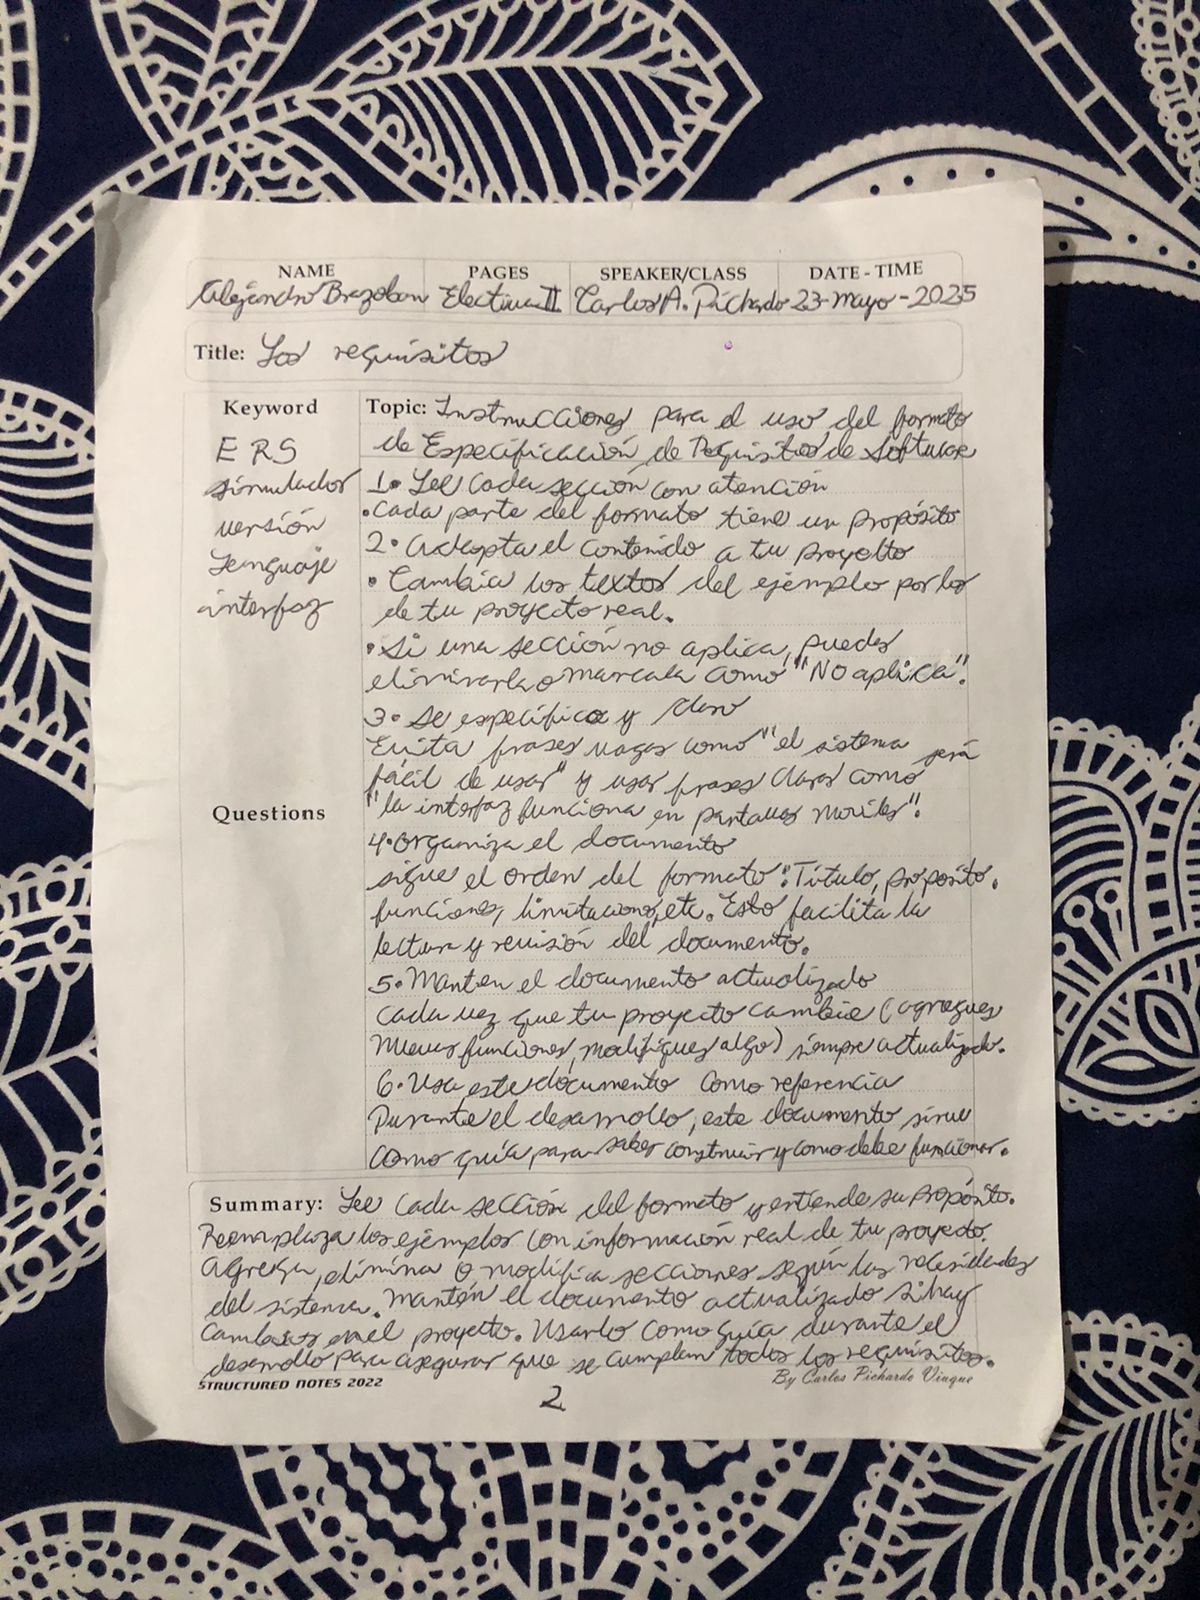 NAME PAGES SPEAKER/CLASS DATE - TIME
Alejandro Brazoban Electiva II Carlos A. Pichardo 23-Mayo-2025
Title: Los requisitos
Keyword
ERS
simulador
versión
Lenguaje
interfaz
Questions
Topic: Instrucciones para el uso del formato
de Especificación de Requisitos de Software
1. Lee cada sección con atención
• Cada parte del formato tiene un propósito
2. Adapta el contenido a tu proyecto
• Cambia los textos del ejemplo por los
de tu proyecto real.
• Si una sección no aplica, puedes
eliminarla o marcala como "No aplica".
3. Se específico y claro
Evita frases vagas como "el sistema será
fácil de usar" y usar frases claras como
"la interfaz funciona en pantallas moviles".
4. Organiza el documento
sigue el orden del formato: Título, proposito,
funciones, limitaciones, etc. Esto facilita la
lectura y revisión del documento.
5. Manten el documento actualizado
cada vez que tu proyecto cambie (agregues
nuevas funciones, modifiques algo) siempre actualizado.
6. Usa este documento como referencia
Durante el desarrollo, este documento sirve
como guía para saber construir y como debe funcionar.
Summary: Lee cada sección del formato y entiende su propósito.
Reemplaza los ejemplos con información real de tu proyecto.
Agrega, elimina o modifica secciones según las necesidades
del sistema. Mantén el documento actualizado si hay
cambios en el proyecto. Usarlo como guía durante el
desarrollo para asegurar que se cumplen todos los requisitos.
STRUCTURED NOTES 2022 By Carlos Pichardo Viuque
2